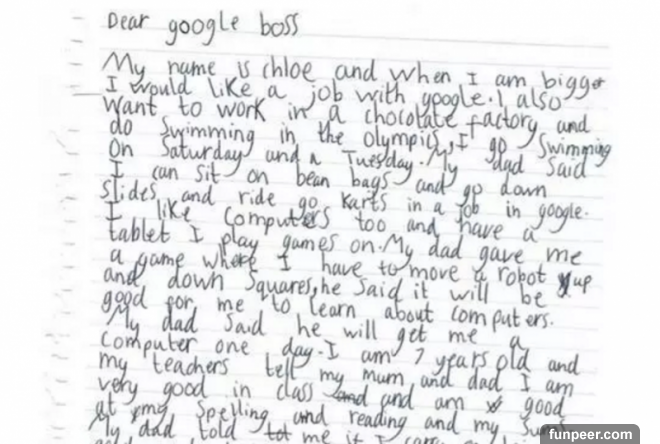 Dear google boss
My name is chloe and when I am bigger
I would like a job with google. I also
want to work in a chocolate factory and
do swimming in the olympics, I go swimming
on Saturday and a Tuesday. My dad said
I can sit on bean bags and go down
slides and ride go karts in a job in google.
I like computers too and have a
tablet I play games on. My dad gave me
a game where I have to move a robot up
and down squares, he said it will be
good for me to learn about computers.
My dad said he will get me a
computer one day. I am 7 years old and
my teachers tell my mum and dad I am
very good in class and am good
at my spelling and reading and my sums
My dad told me if I carry on
funpeer.com